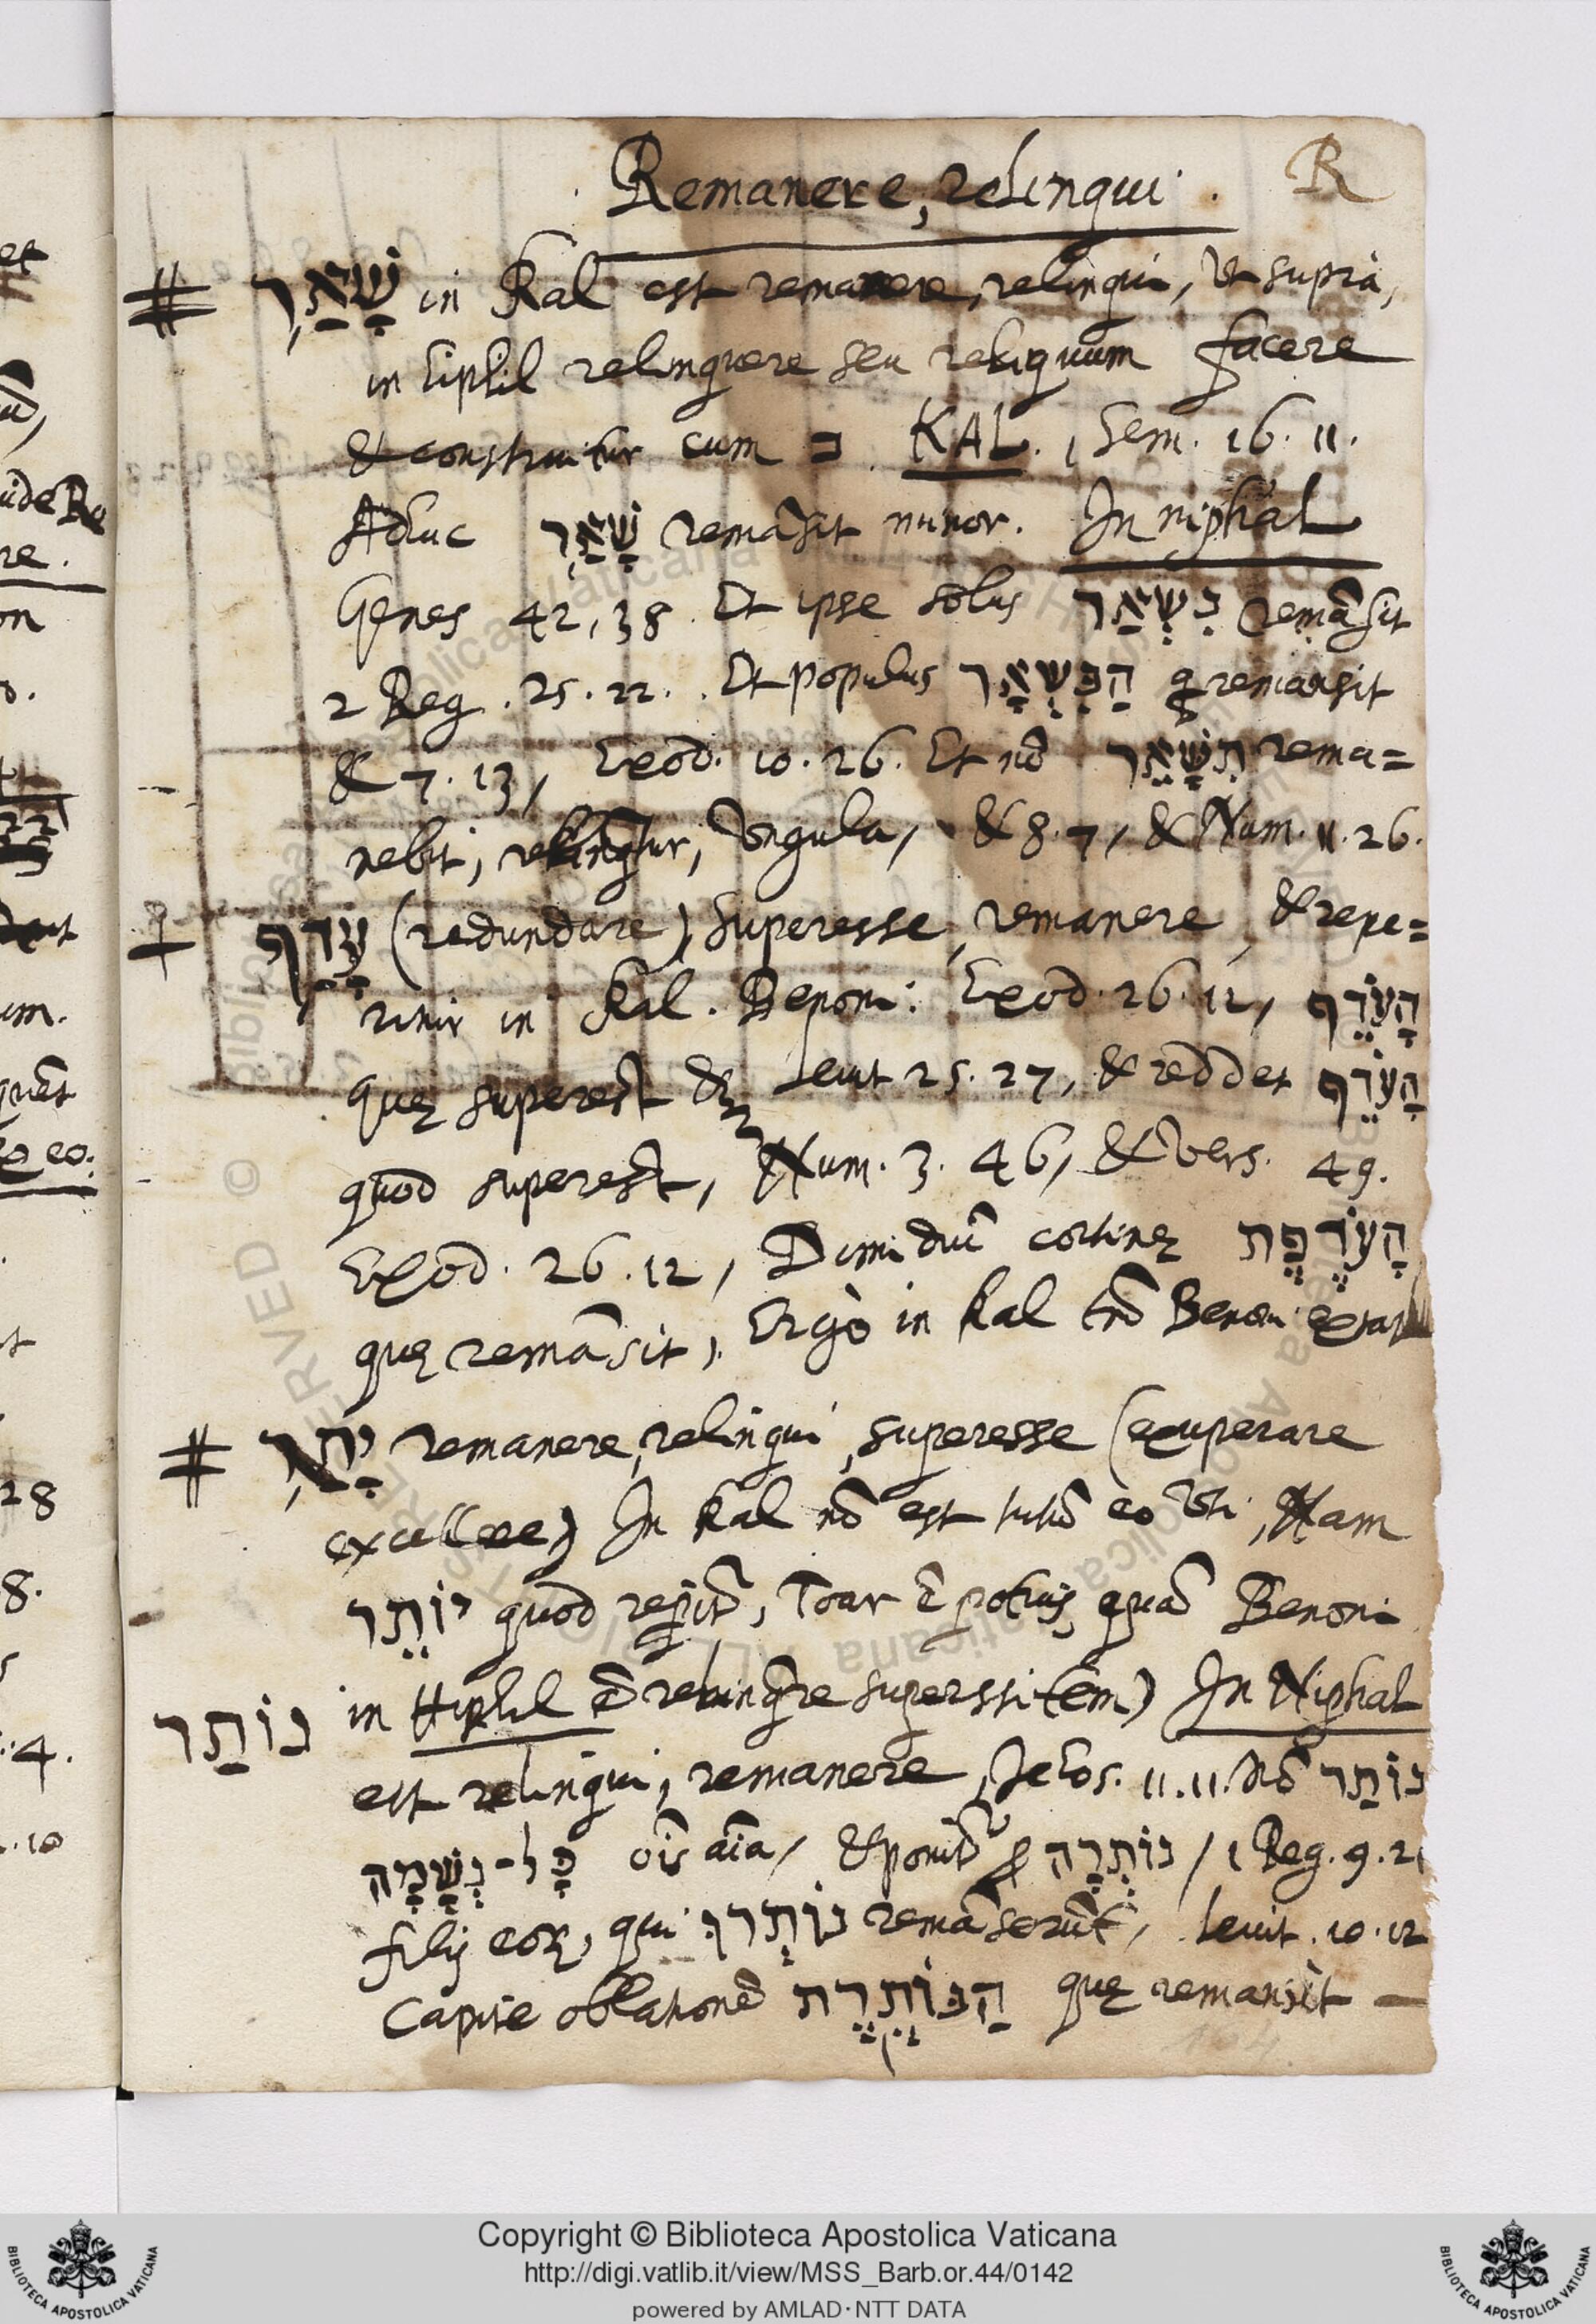 Remanere, relinqui. R
# שָׁאַר in Kal est remanere, relinqui, ut suprà,
in hiphil relinquere seu reliquum facere
& construitur cum ב. KAL. 1 Sem. 16. 11.
Adhuc שָׁאַר remāsit minor. In niphal
Genes 42, 38. Et ipse solus נִשְׁאַר remāsit
2 Reg. 25. 22. Et populus הַנִּשְׁאָר q remansit
& 7. 13, Exod. 10. 26. Et nō תִשָּׁאֵר rema=
nebit, relinq̄tur, Ungula, & 8. 7, & Num. 11. 26.
עָדַף (redundare) superesse, remanere, & repe=
ritur in Kal. Benoni: Exod. 26. 12, הָעֹדֵף
quę superest & Levit 25. 27, & reddet הָעֹדֵף
quod superest, Num. 3. 46, & vers. 49.
Exod. 26. 12, Dimidiū cortinę הָעֹדֶפֶת
quę remāsit, Ergò in Kal tm̄ Benoni
# יָתַר remanere, relinqui, superesse (exuperare
excellere) In Kal nō est tutū eo uti, Nam
יוֹתֵר quod repit̄, Toar ē potius, quā Benoni
in Hiphil ē relinq̄re superstitem) In Niphal
נוֹתַר
est relinqui, remanere, Jehos. 11. 11. Nō נוֹתַר
כָּל-נְשָׁמָה oīs aīa, & ponit̄ נוֹתְרָה, 1 Reg. 9. 21
filij eoꝝ, qui נוֹתְרוּ remāserūt, Levit. 10. 12
Capite oblationē הַנּוֹתֶרֶת quę remansit —
Copyright © Biblioteca Apostolica Vaticana
http://digi.vatlib.it/view/MSS_Barb.or.44/0142
powered by AMLAD·NTT DATA